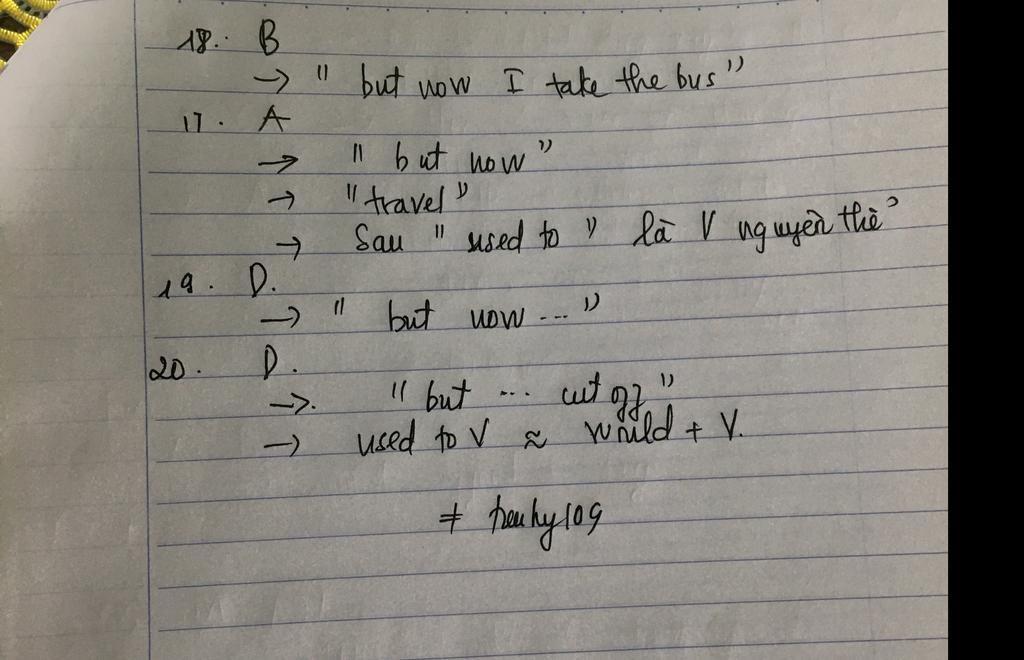 18. B
→ " but now I take the bus"
17. A
→ " but now"
→ "travel"
→ Sau " used to " là V nguyên thể
19. D.
→ " but now ... "
20. D.
→. "but ... cut off"
→ used to V ≈ would + V.